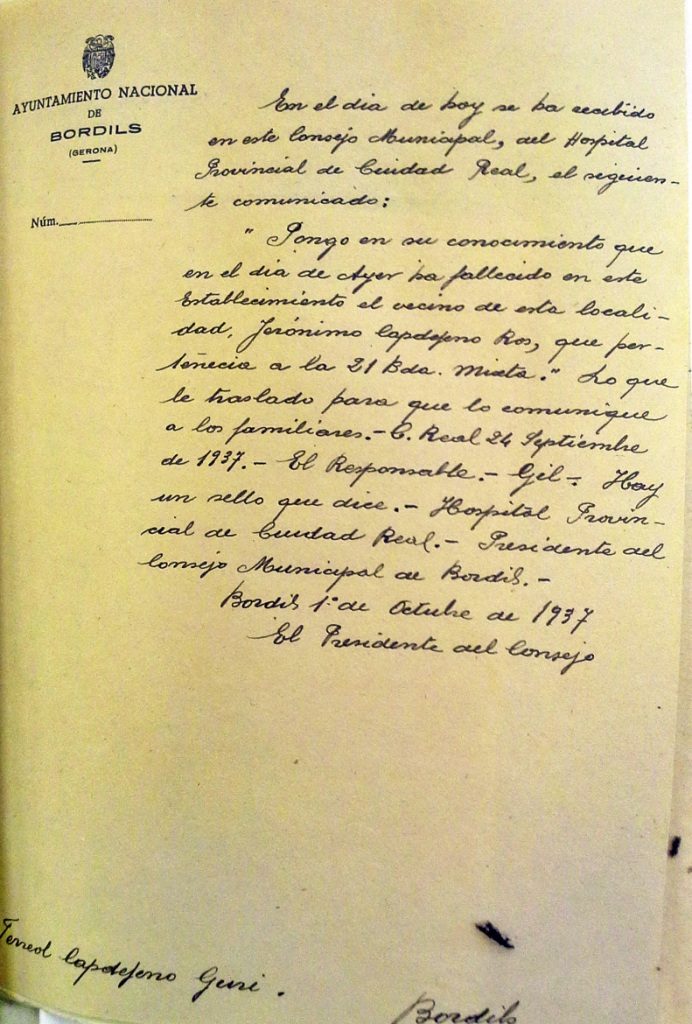 AYUNTAMIENTO NACIONAL
DE
BORDILS
(GERONA)
Núm.
En el dia de hoy se ha recibido
en este Consejo Municipal, del Hospital
Provincial de Ciudad Real, el siguien-
te comunicado:
" Pongo en su conocimiento que
en el dia de Ayer ha fallecido en este
Establecimiento el vecino de esta locali-
dad, Jerónimo Capdefeno Ros, que per-
tenecia a la 21 Bda. Mixta." Lo que
le traslado para que lo comunique
a los familiares.- C. Real 24 Septiembre
de 1937.- El Responsable.- Gil-. Hay
un sello que dice.- Hospital Provin-
cial de Ciudad Real.- Presidente del
Consejo Municipal de Bordils.-
Bordils 1º de Octubre de 1937
El Presidente del Consejo
Capdefeno Geni.
Bordils